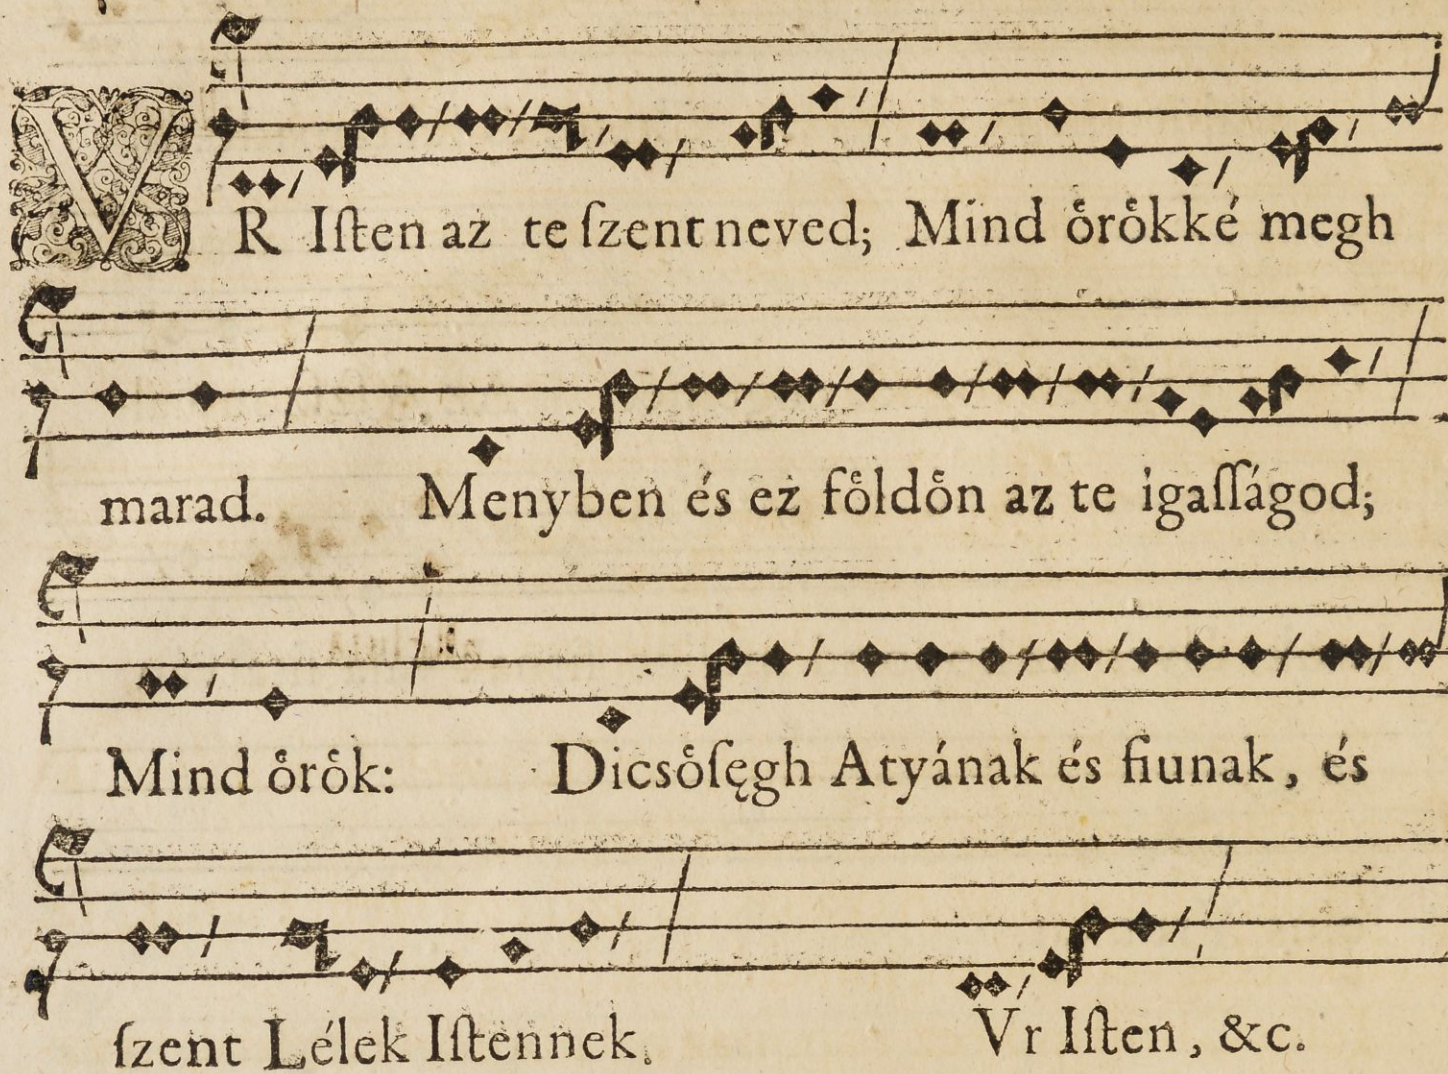 VR Iſten az te ſzent neved; Mind oͤroͤkké megh
marad. Menyben és ez foͤldoͤn az te igaſſágod;
Mind oͤroͤk: Dicsoͤſęgh Atyának és fiunak, és
ſzent Lélek Iſtennek. Vr Iſten, &c.